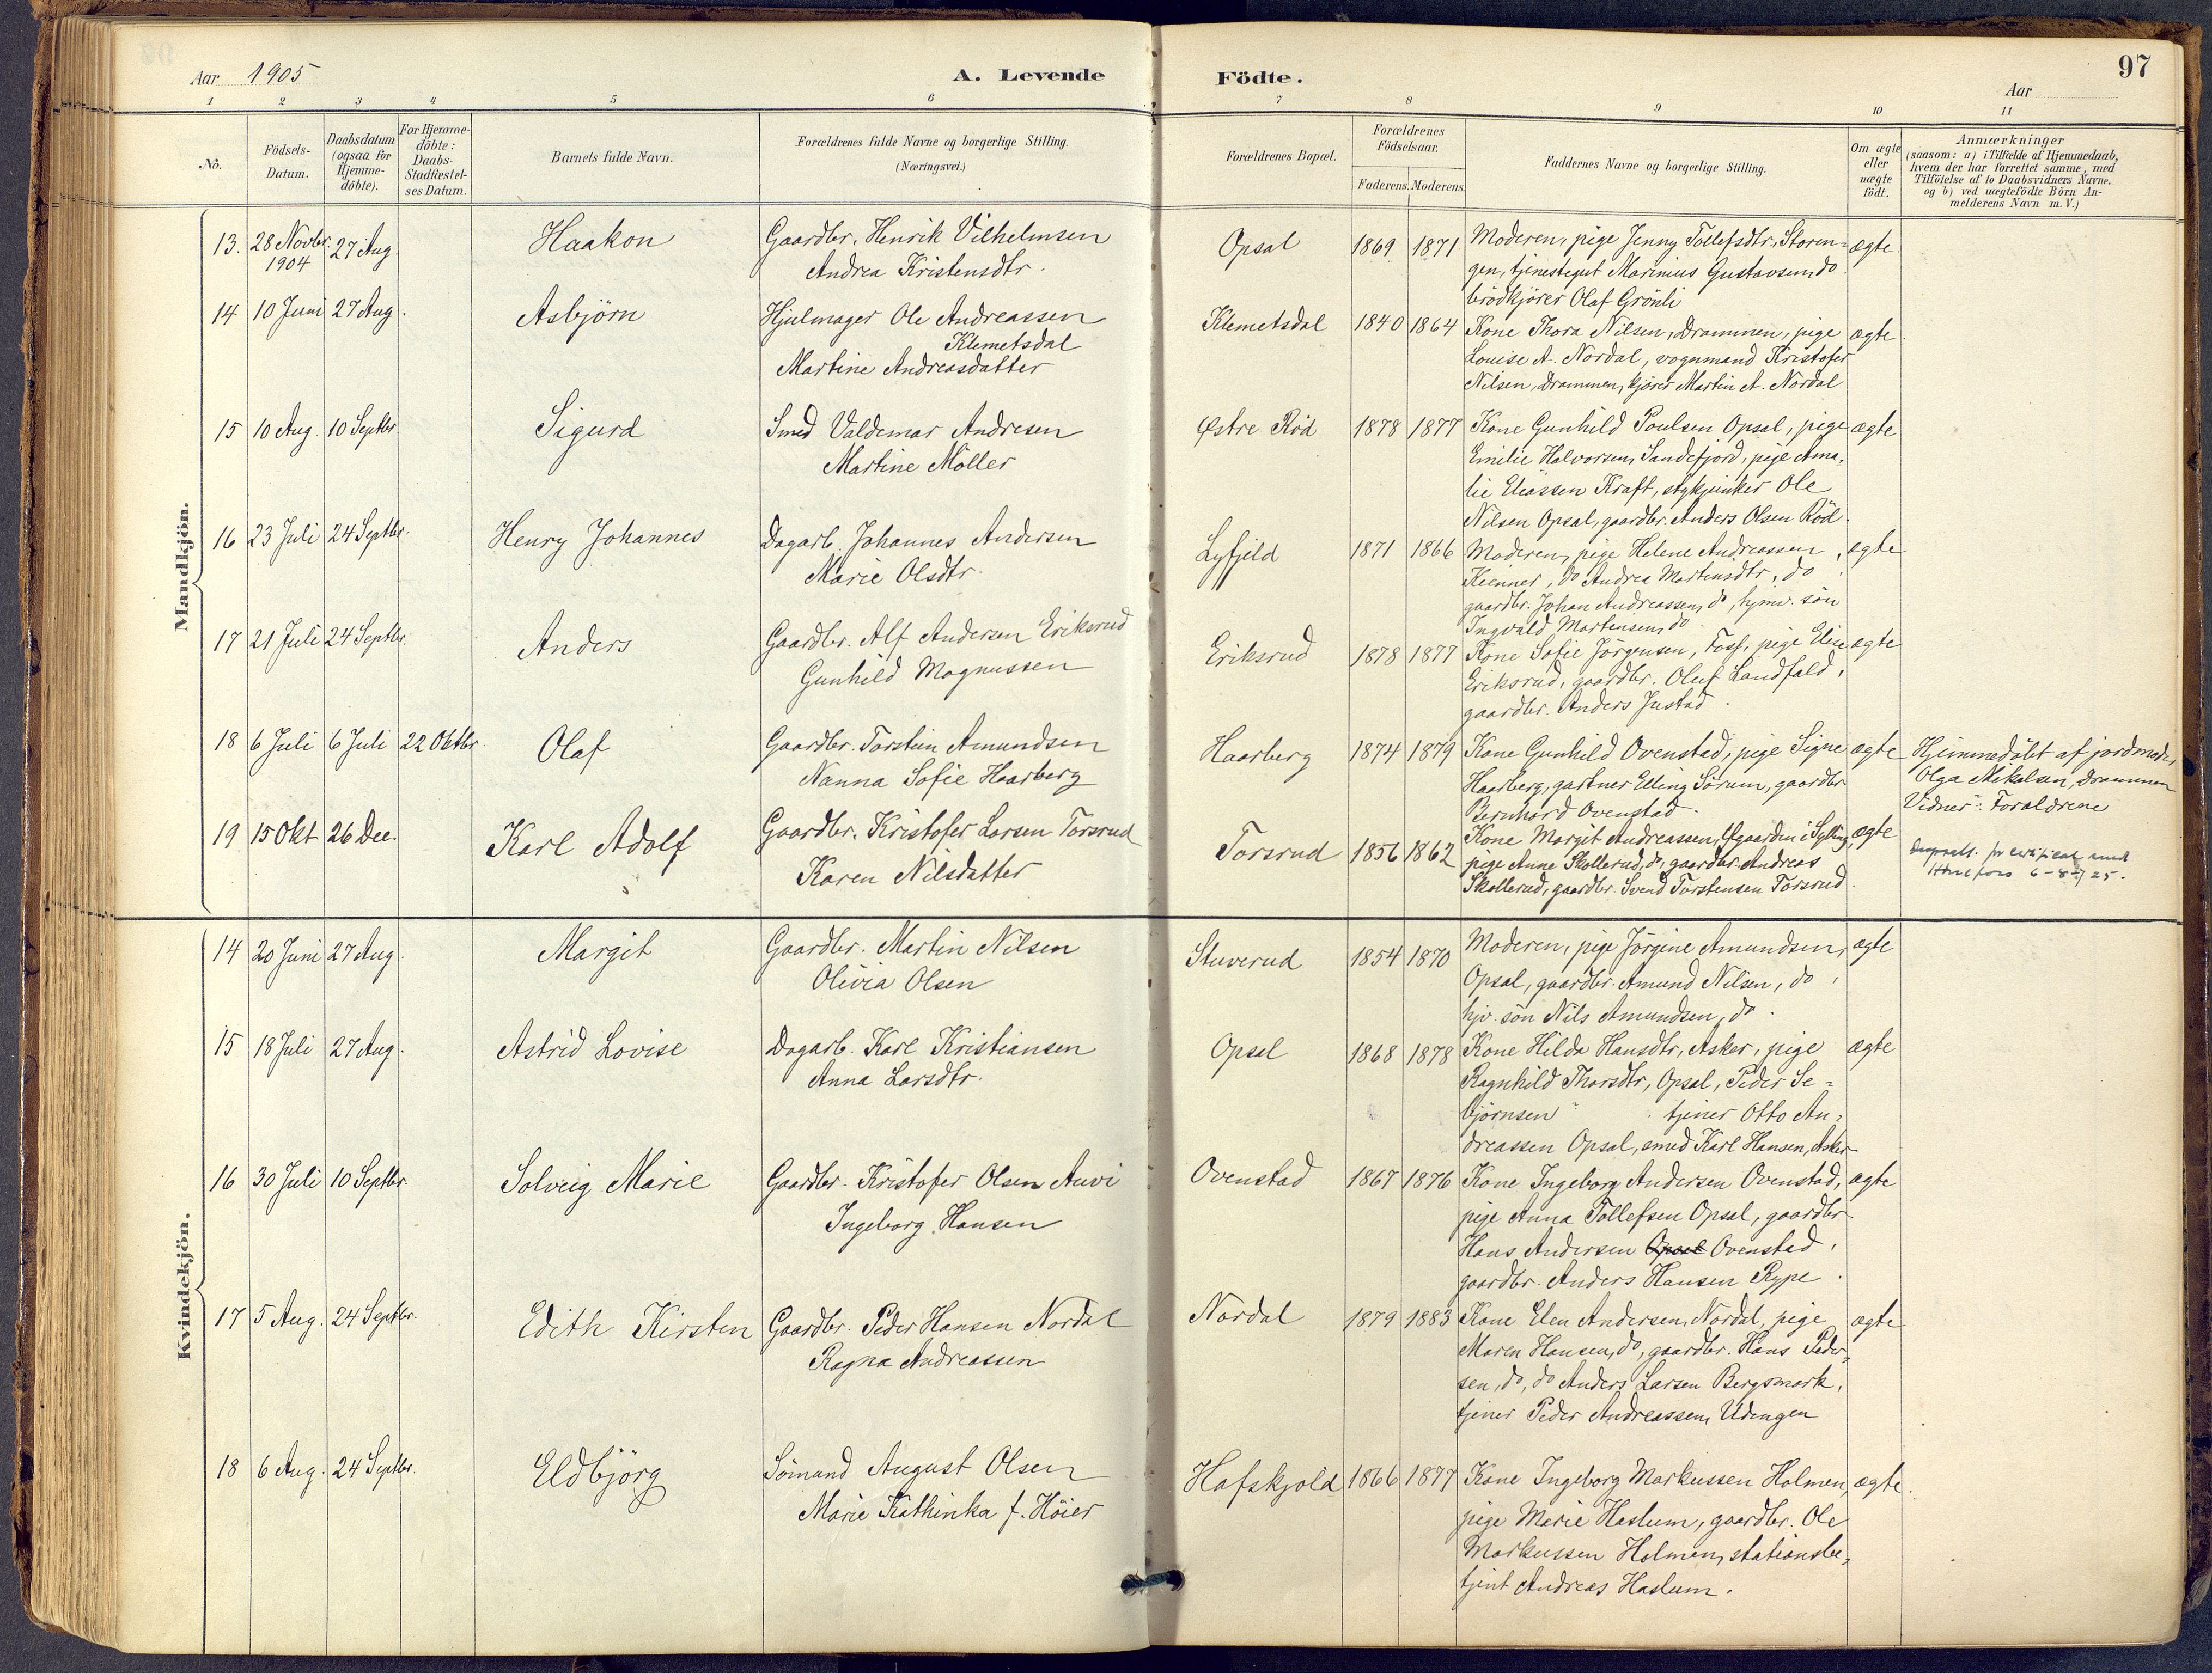 97
Aar 1905
A. Levende Födte.
Aar
1 2 3 4 5 6 7 8 9 10 11
No.
Födsels-Datum.
Daabsdatum (ogsaa for Hjemme-döbte).
For Hjemme-döbte: Daabs-Stadfæstel-ses Datum.
Barnets fulde Navn.
Forældrenes fulde Navne og borgerlige Stilling.
(Næringsvei.)
Forældrenes Bopæl.
Forældrenes Födselsaar.
Faderens. Moderens.
Faddernes Navne og borgerlige Stilling.
Om ægte eller uægte födt.
Anmærkninger
(saasom: a) i Tilfælde af Hjemmedaab,
hvem der har forrettet samme, med
Tilföielse af to Daabsvidners Navne.
og b) ved uægtefödte Börn An-
melderens Navn m. V.)
Mandkjön.
13. 28 Novbr. 1904 27 Aug. Haakon
Gaardbr. Henrik Vilhelmsen
Andrea Kristensdtr.
Opsal 1869 1871
Moderen, pige Jenny Tollefsdtr. Storen-
gen, tjenestegut Marinius Gustavsen, do
brödkjörer Olaf Grönli
ægte.
14 10 Juni 27 Aug. Asbjörn
Hjulmager Ole Andreassen
Klemetsdal
Martine Andreasdatter
Klemetsdal 1840 1864
Kone Thora Nilsen, Drammen, pige
Louise A. Nordal, vognmand Kristofer
Nilsen, Drammen, kjörer Martin A. Nordal
ægte.
15 10 Aug. 10 Septbr Sigurd
Smed Valdemar Andresen
Martine Möller
Østre Röd 1878 1877
Kone Gunhild Poulsen Opsal, pige
Emilie Halvorsen, Sandefjord, pige Ama-
lie Eliassen Kraft, stykjunker Ole
Nilsen Opsal, gaardbr. Anders Olsen Röd.
ægte
16 23 Juli 24 Septbr. Henry Johannes
Dagarb. Johannes Andersen
Marie Olsdtr.
Lyfjeld 1871 1866
Moderen, pige Helene Andreassen
Kienner, do Andrea Martinsdtr, do
gaardbr. Johan Andreassen, do, hjmv. sön
Ingvald Martensen, do
ægte
17 21 Juli 24 Septbr. Anders
Gaardbr. Alf Andersen Eriksrud
Gunhild Magnussen
Eriksrud 1878 1877
Kone Sofie Jörgensen, Foss, pige Elise
Eriksrud, gaardbr. Oluf Landfald,
gaardbr. Anders Justad.
ægte
18 6 Juli 6 Juli 22 Oktbr. Olaf
Gaardbr. Torstein Amundsen
Nanna Sofie Haarberg
Haarberg 1874 1879
Kone Gunhild Ovenstad, pige Signe
Haarberg, gartner Elling Sörum, gaardbr
Bernhard Ovenstad.
ægte
Hjemmedöbt af jordmoder
Olga Mikalsen, Drammen
Vidner: Forældrene
19 15 Okt 26 Dec. Karl Adolf
Gaardbr. Kristofer Larsen Torsrud
Karen Nilsdatter
Torsrud 1856 1862
Kone Margit Andreassen, Øfgaarden i Sylling,
pige Anne Skollerud, do, gaardbr. Andreas
Skollerud, gaardbr. Svend Torstensen Torsrud.
ægte
6-8-25.
Kvindekjön.
14 20 Juni 27 Aug. Margit
Gaardbr. Martin Nilsen
Olivia Olsen
Stuverud 1854 1870
Moderen, pige Jörgine Amundsen,
Opsal, gaardbr. Amund Nilsen, do,
hjv. sön Nils Amundsen, do.
ægte
15 18 Juli 27 Aug. Astrid Lovise
Dagarb. Karl Kristiansen
Anna Larsdtr.
Opsal 1868 1878
Kone Hilda Hansdtr, Asker, pige
Ragnhild Thorsdtr, Opsal, Peder Se-
björnsen " tjener Otto An-
dreassen Opsal, smed Karl Hansen, Asker
ægte
16 30 Juli 10 Septbr. Solveig Marie
Gaardbr. Kristofer Olsen Auvi
Ingeborg Hansen
Ovenstad 1867 1876
Kone Ingeborg Andersen Ovenstad,
pige Anna Tollefsen Opsal, gaardbr
Hans Andersen Opsal Ovenstad,
gaardbr. Anders Hansen Rype.
ægte
17 5 Aug. 24 Septbr. Edith Kirsten
Gaardbr. Peder Hansen Nordal
Ragna Andreassen
Nordal 1879 1883
Kone Elen Andersen, Nordal, pige
Maren Hansen, do, gaardbr. Hans Peder-
sen, do, do Anders Larsen Bergsmark,
tjener Peder Andreassen, Udengen
ægte
18 6 Aug. 24 Septbr. Eldbjörg
Sömand August Olsen
Marie Kathinka f. Höier
Hafskjold 1866 1877
Kone Ingeborg Markussen Holmen,
pige Marie Haslum, gaardbr. Ole
Markussen Holmen, stationsbe-
tjent Andreas Haslum.
ægte.